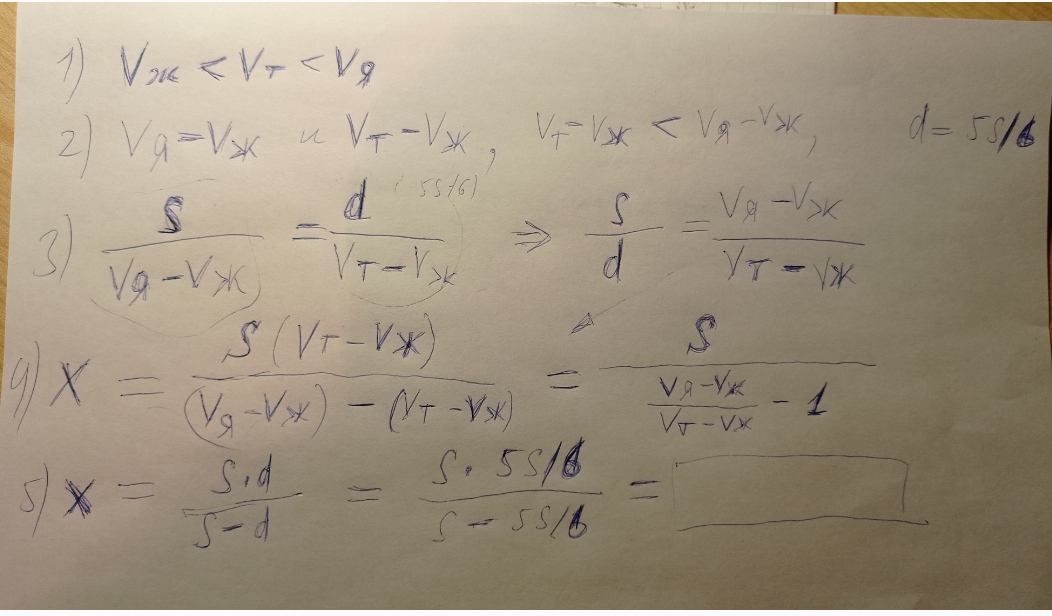 1) Vж < Vт < Vя
2) Vя = Vж и Vт - Vж, Vт - Vж < Vя - Vж, d = 5S/6
3) S / (Vя - Vж) = d (5S/6) / (Vт - Vж) ⇒ S / d = (Vя - Vж) / (Vт - Vж)
4) X = S (Vт - Vж) / ((Vя - Vж) - (Vт - Vж)) = S / ((Vя - Vж) / (Vт - Vж) - 1)
5) X = S · d / (S - d) = S · 5S/6 / (S - 5S/6) =